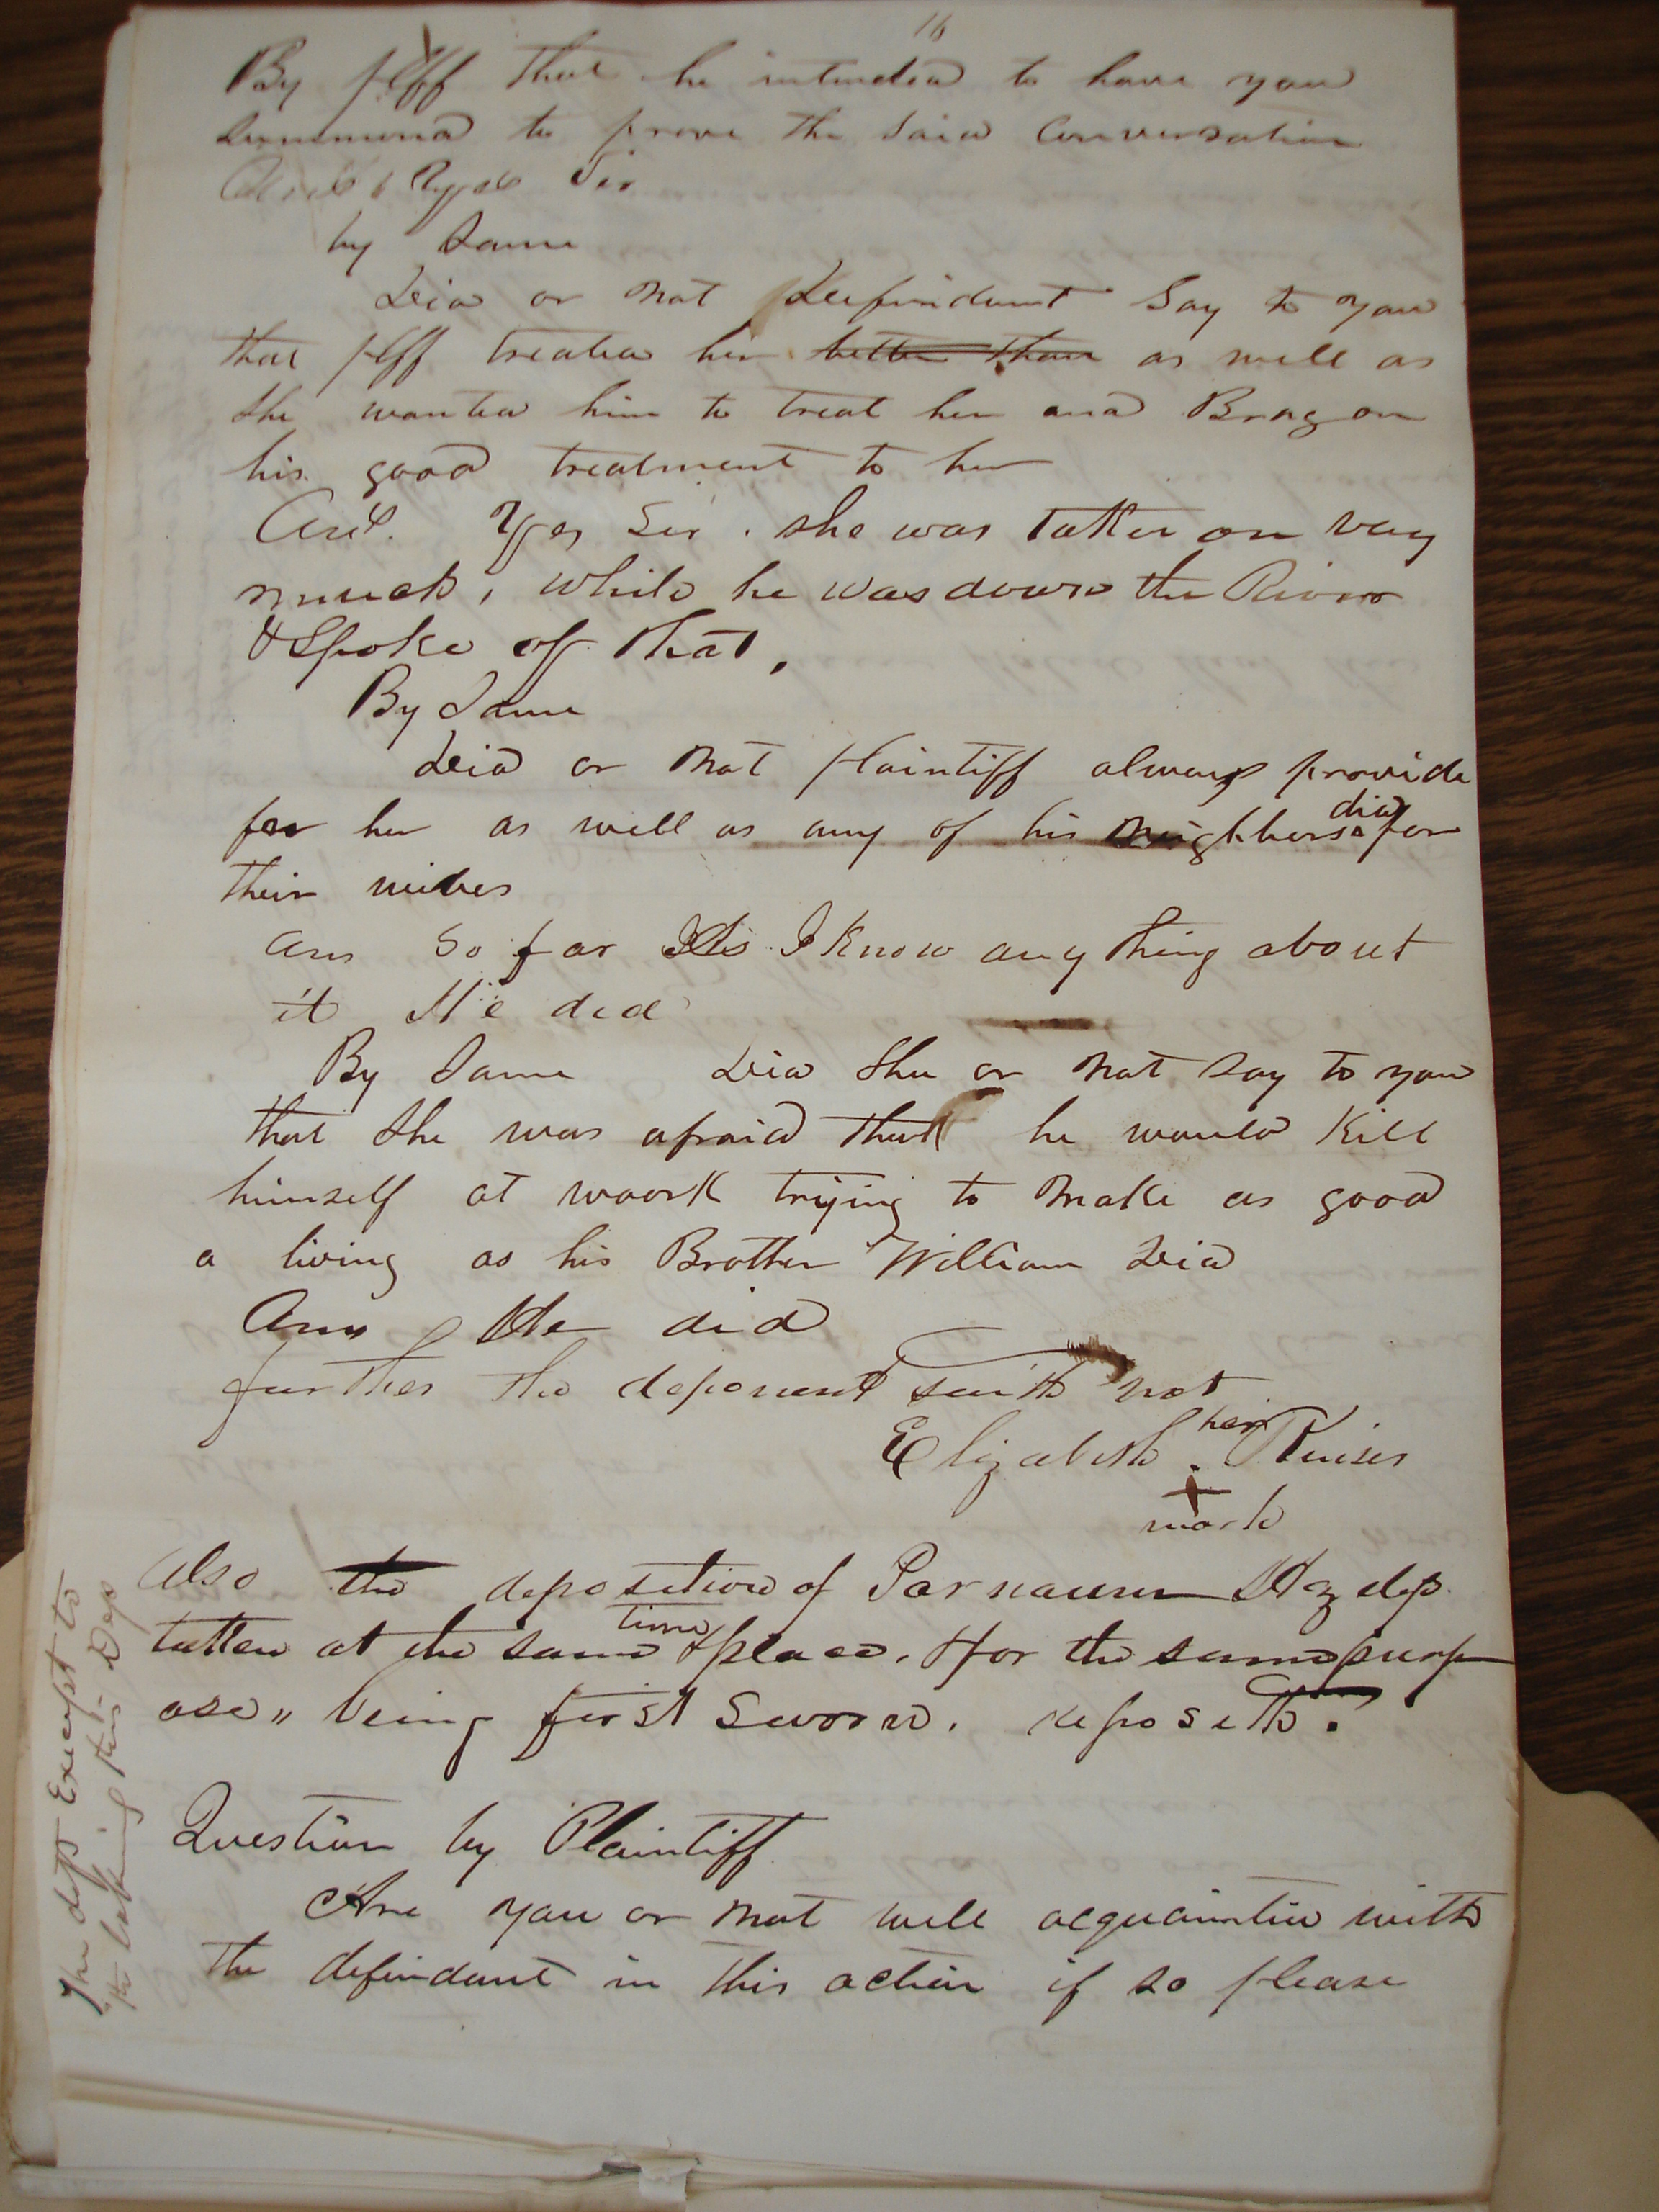 16
By plff that he intended to have you
summond to prove the said Conversation
Ans Yes Sir
by Same
Did or not Defendant Say to you
that plff treated her better than as well as
she wanted him to treat her and Brag on
his good treatment to her
Ans. Yes Sir. she was talkin on vary
much, while he was down the River
& Spoke of that,
By Same
Did or not plaintiff always provide
for her as well as any of his neighbors did for
their wives
Ans So far As I know any thing about
it He did
By Same Did She or not say to you
that she was afraid that he would Kill
himself at woork trying to make as good
a living as his Brother William Did
Ans She did
further the deponent saith not
Elizabeth her
X
mark
Also the deposition of
taken at the same time & place, & for the same purp
ose,, being first sworn. deposeth.
Question by Plaintiff
Are you or not well acquainted with
the defendant in this action if so please
The deft Except to
the taking this Dep